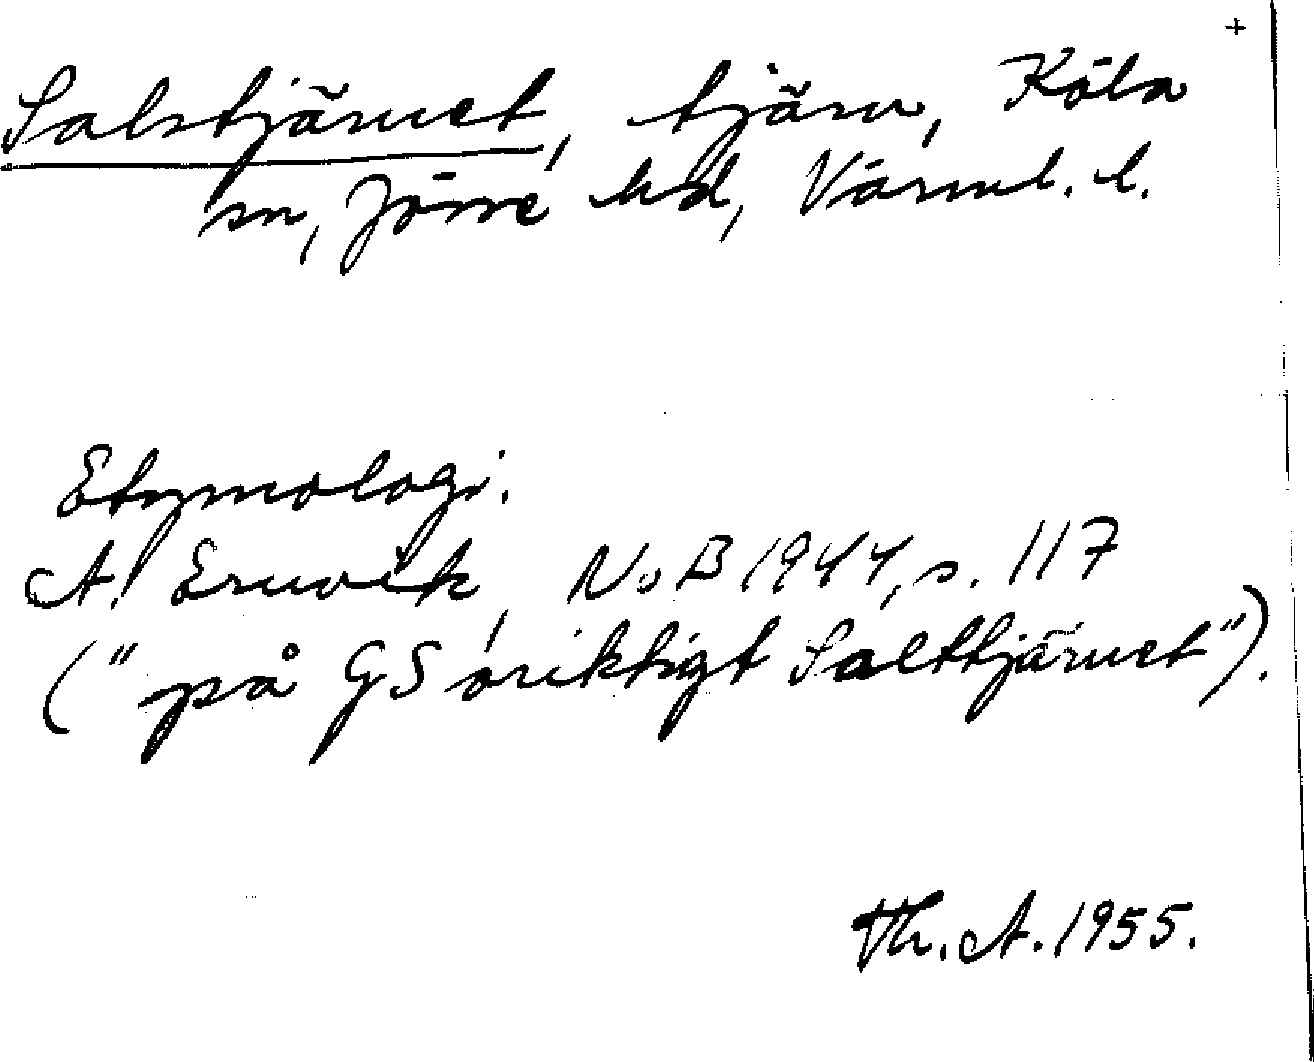 +
Salstjärnet, tjärn, Köla
sn, Jösse hd, Värml. l.
Etymologi.
A. Ernvik, NoB 1944, s. 117
("på GS oriktigt Salttjärnet").
Th. A. 1955.